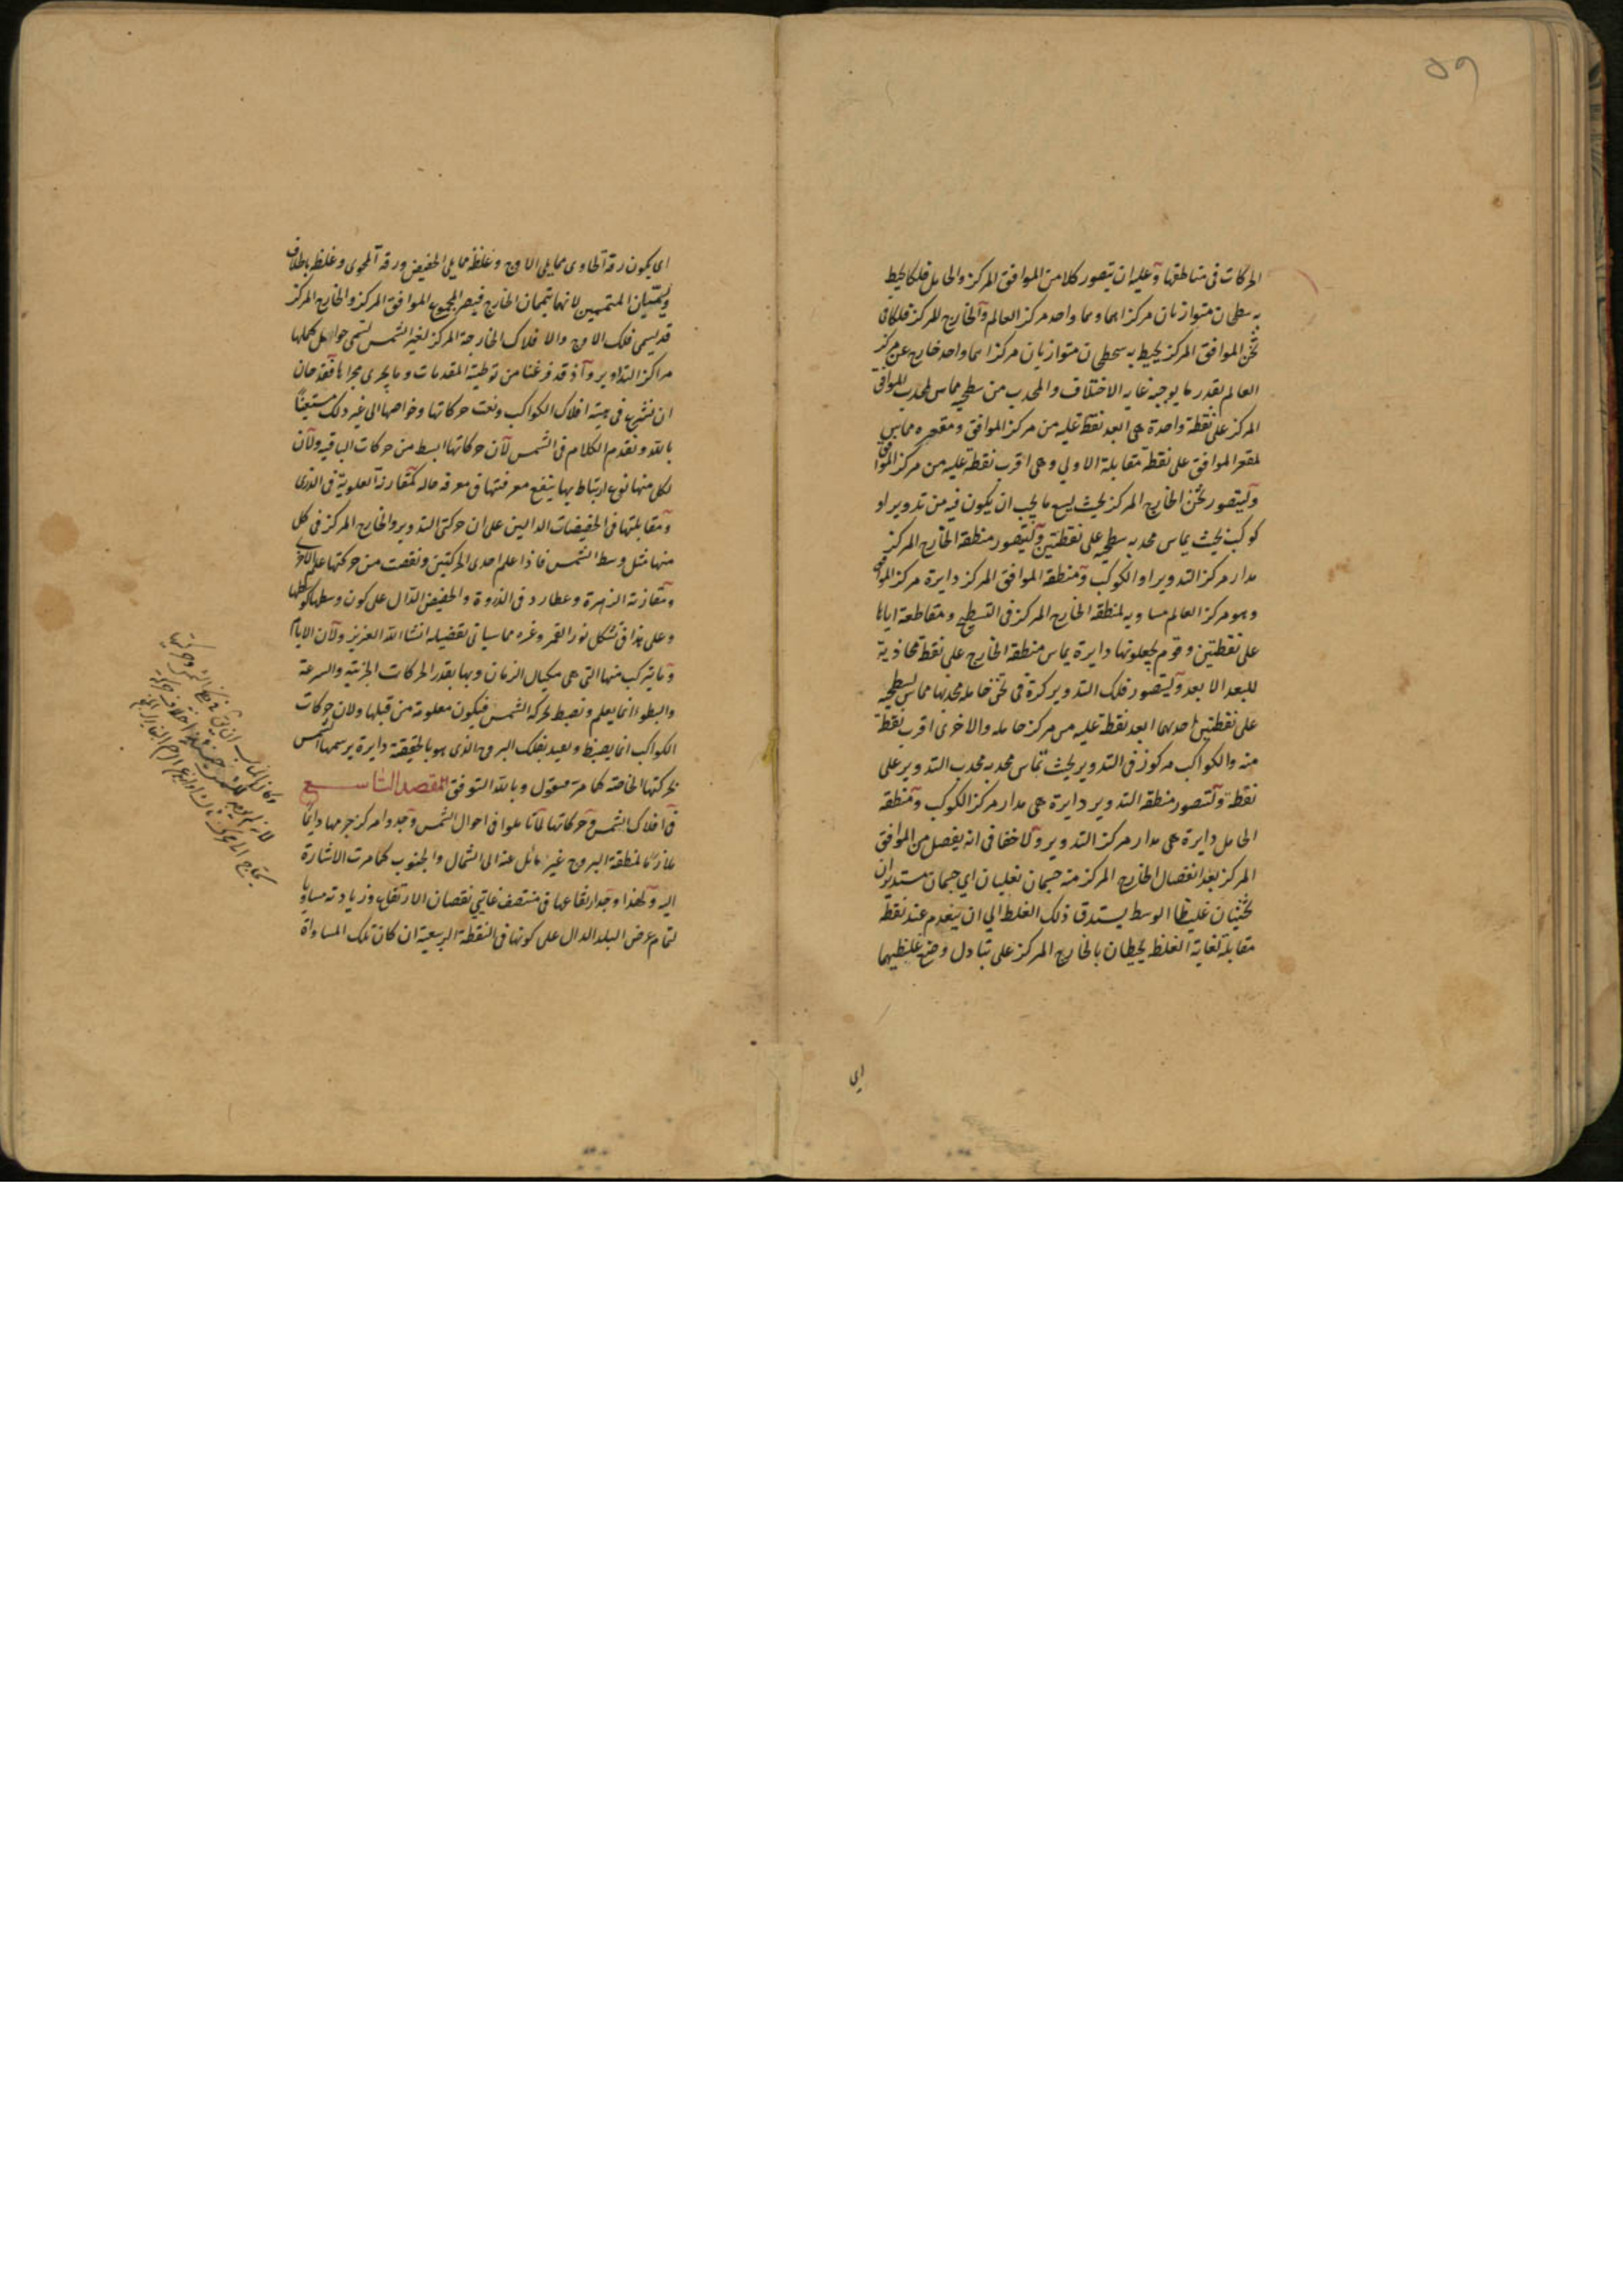 ٥٩
الحركات فى مناطقها وعليه ان يتصور كلا من الموافق المركز والحامل فلكا يحيط
به سطحان متوازيان مركزاهما واحد مركز العالم والخارج المركز فلكا فى
ثخن الموافق المركز يحيط به سطحان متوازيان مركزاهما واحد خارج عن مركز
العالم بقدر ما يوجبه غاية الاختلاف والمحدب من سطحيه مماس لمحدب الموافق
المركز على نقطة واحدة هى ابعد نقطة عليه من مركز الموافق ومقعره مماس
لمقعر الموافق على نقطة مقابلة الاولي وهى اقرب نقطة عليه من مركز الموافق
وليتصور ثخن الخارج المركز بحيث يسع ما يجب ان يكون فيه من تدوير او
كوكب بحيث يماس محدبه سطحيه على نقطتين وليتصور منطقة الخارج المركز
مدار مركز التدوير او الكوكب ومنطقة الموافق المركز دايرة مركز الموافق
وهو مركز العالم مساويه لمنطقة الخارج المركز فى التسطيح ومتقاطعة اياها
على نقطتين وقوم يجعلونها دايرة يماس منطقة الخارج على نقطة محاذية
للبعد الابعد وليتصور فلك التدوير كرة فى ثخن حامله محدبها مماس لسطحيه
على نقطتين احديهما ابعد نقطة عليه من مركز حامله والاخرى اقرب نقطة
منه والكواكب مركوز فى التدوير بحيث تماس محدبه محدب التدوير على
نقطة وليتصور منطقة التدوير دايرة هى مدار مركز الكوكب ومنطقة
الحامل دايرة هى مدار مركز التدوير ولا خفا فى انه يفصل من الموافق
المركز بعد انفصال الخارج المركز منه جسمان تعليميان اي جسمان مستديران
ثخينان غليظا الوسط يستدق ذلك الغلظ الي ان ينعدم عند نقطة
مقابلة لغاية الغلظ يحيطان بالخارج المركز على تبادل وضع غلظيهما
اى
اى يكون رقة الحاوى مما يلى الاوج وغلظه مما يلى الحضيض ورقة المحوى وغلظه بخلاف
ويسميان المتممين لانهما يتممان الخارج فيصير المجموع الموافق المركز والخارج المركز
قد يسمى فلك الاوج والافلاك الخارجة المركز لغير الشمس تسمى حوامل لحملها
مراكز التداوير واذ قد فرغنا من توطية المقدمات وما يجرى مجراها فقد حان
ان نشرع فى هيئة افلاك الكواكب ونعت حركاتها وخواصها الى غير ذلك مستعينًا
بالله ونقدم الكلام فى الشمس لان حركاتها ابسط من حركات الباقيه ولان
لكل منها نوع ارتباط بها ينتفع معرفتها فى معرفة حاله كمقارنة العلوية فى الذرى
ومقابلتها فى الحضيضات الدالين على ان حركتى التدوير والخارج المركز فى كل
منها مثل وسط الشمس فاذا علم احدى الحركتين ونقصت من حركتها علم الاخرى
ومقارنة الزهرة وعطارد فى الذروة والحضيض الدال على كون وسطهما كوسطها
وعلى هذا فى تشكل نور القمر وغيره مما سياتى تفصيله انشا الله العزيز ولان الايام
وما يتركب منها التى هى مكيال الزمان وبها يقدر الحركات الجزئية والسرعة
والبطوء انما يعلم وتضبط بحركة الشمس فيكون معلومة من قبلها ولان حركات
الكواكب انما يضبط ويعيد بفلك البروج الذى هو بالحقيقة دايرة يرسمها الشمس
بحركتها الخاصة كما مر منقول وبالله التوفيق المقصد التاسع
فى افلاك الشمس وحركاتها لما تاملوا فى احوال الشمس وجدوا مركز جرمها دايمًا
ملازمًا لمنطقة البروج غير مائل عنه الى الشمال والجنوب كما مرت الاشارة
اليه ولهذا وجد ارتفاعها فى منتصف غايتى نقصان الارتفاع وزيادته مساويا
لتمام عرض البلد الدال على كونها فى النقطة الربيعية ان كان تلك المساواة